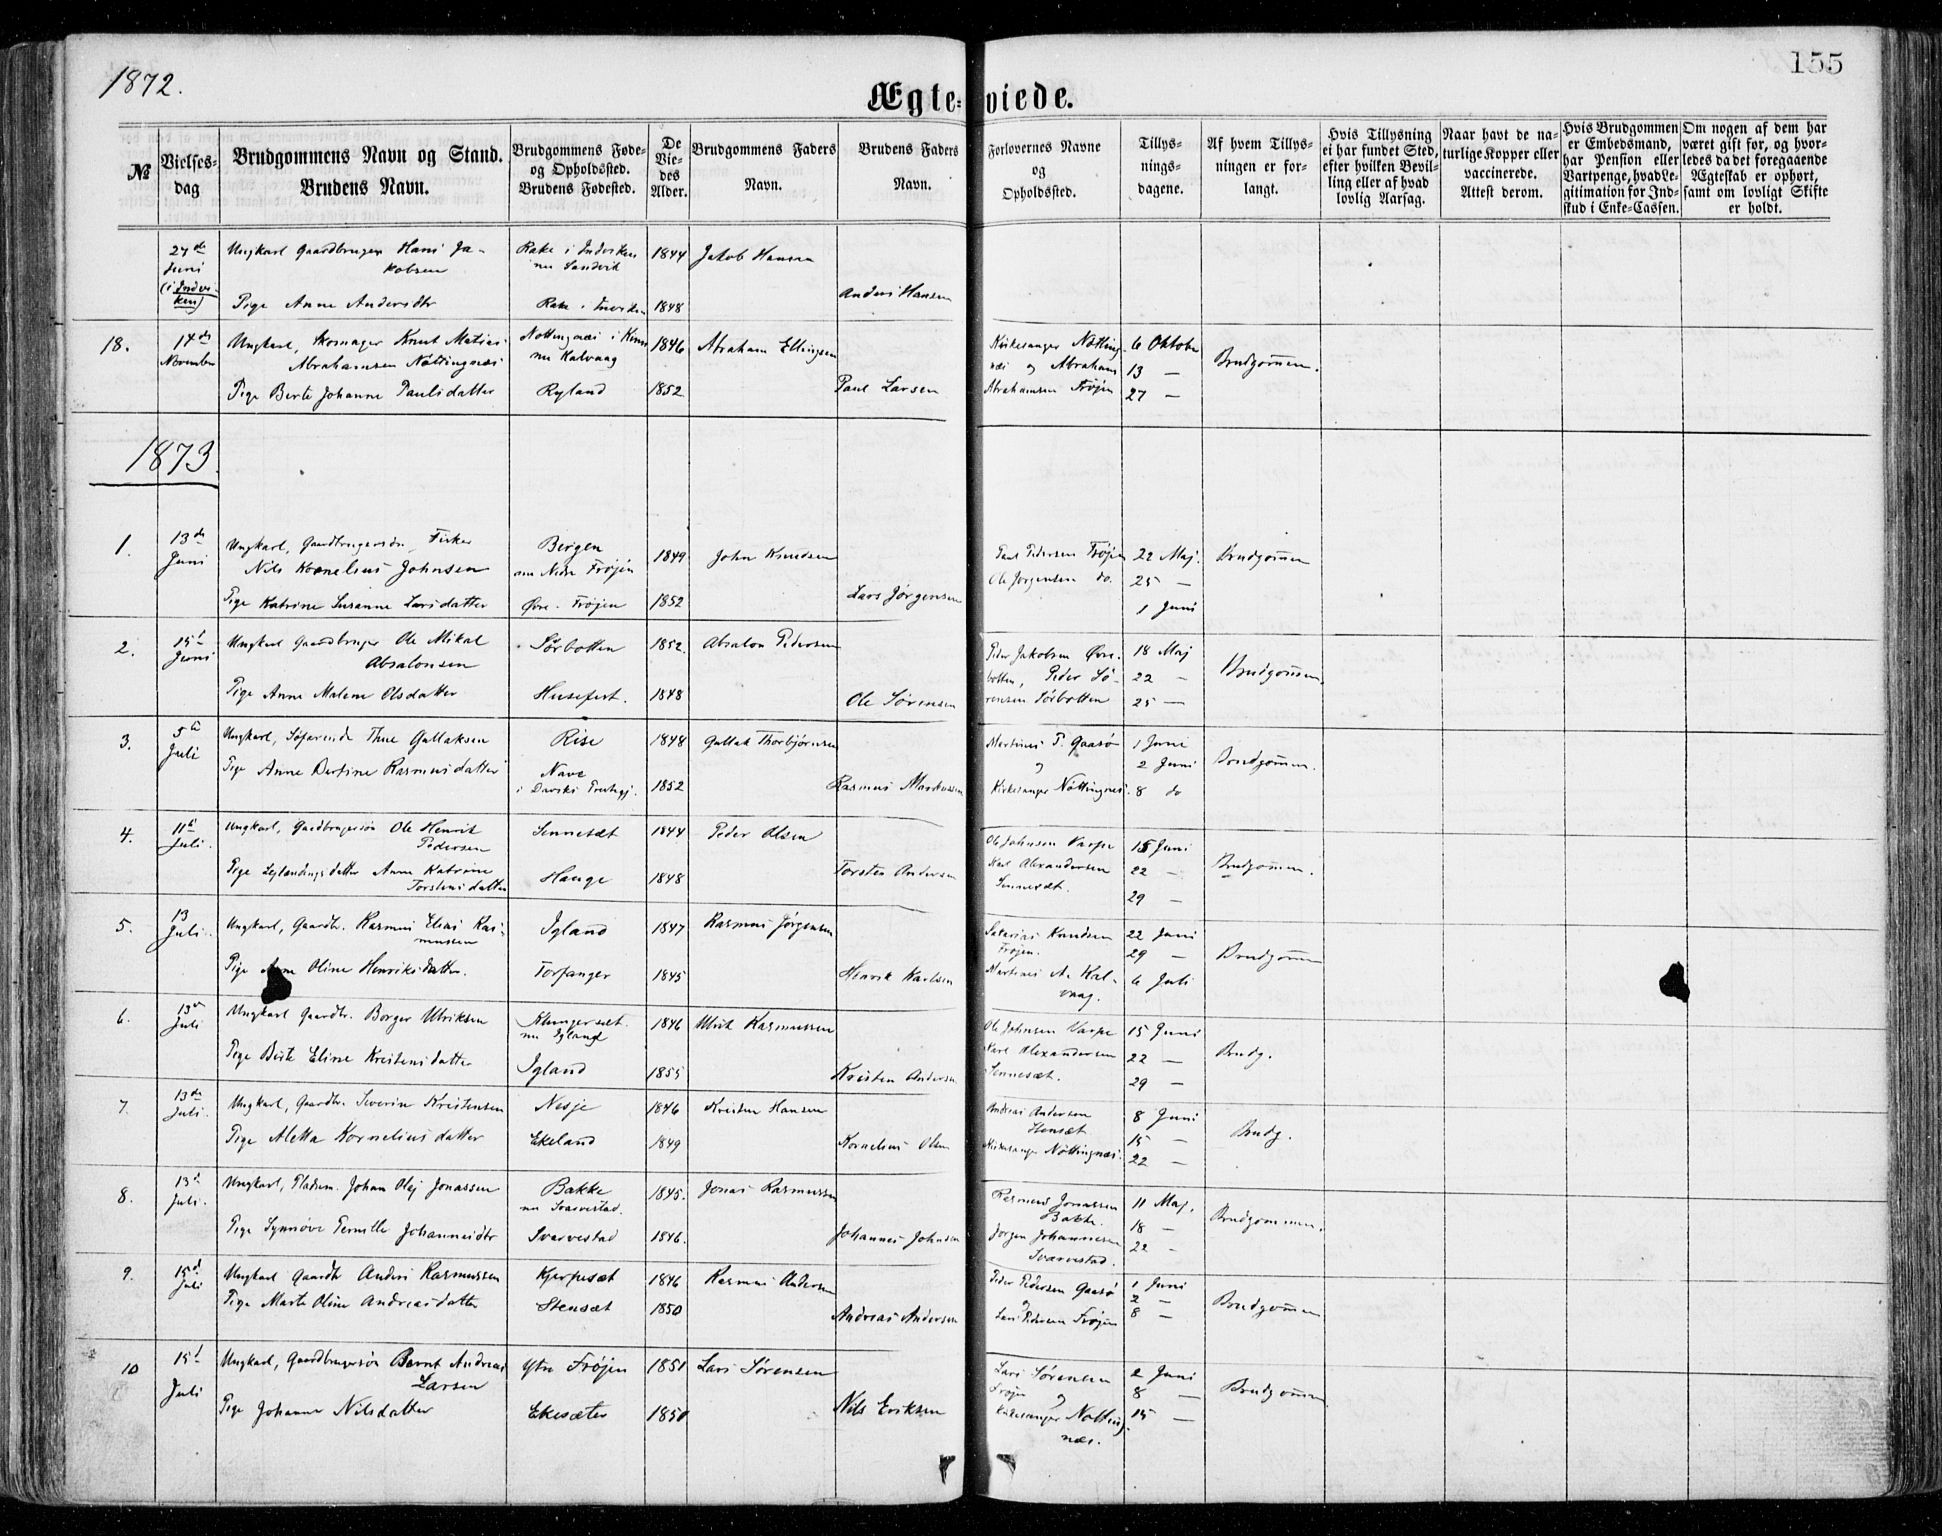 1872.
155
Ægteviede.
№
Vielsesdag
Brudgommens Navn og Stand.
Brudens Navn.
Brudgommens Føde-
og Opholdssted.
Brudens Fødested.
De
Vie-
des
Alder.
Brudgommens Faders
Navn.
Brudens Faders
Navn.
Forlovernes Navne
og
Opholdssted.
Tillys-
nings-
dagene.
Af hvem Tillys-
ningen er for-
langt.
Hvis Tillysning
ei har fundet Sted,
efter hvilken Bevil-
ling eller af hvad
lovlig Aarsag.
Naar havt de na-
turlige Kopper eller
vaccinerede.
Attest derom.
Hvis Brudgommen
er Embedsmand,
har Pension eller
Vartpenge, hvad Le-
gitimation for Ind-
skud i Enke-Cassen.
Om nogen af dem har
været gift før, og hvor-
ledes da det foregaaende
Ægteskab er ophørt,
samt om lovligt Skifte
er holdt.
Juni
Ungkarl Gaardbruger Hans Ja-
kobsen
1844
Jakob Hansen
Pige Anne Andersdtr
1848
Anders Hansen
18.
14de
November
Ungkarl, Skomager Knut Matias
Abrahamsen Nøttingnæs
Nøttingnæs i Kinn
nu Kalvaag
1846
Abraham Ellingsen
Pige Berte Johanne Paulsdatter
Ryland
1852
Paul Larsen
Kirkesanger Nøtting-
næs og Abraham
Abrahamsen Frøjen
6 Oktober
13 —
27 —
Brudgommen.
1873.
1.
13de
Juni
Ungkarl, Gaardbrugersøn, Fisker
Nils Kornelius Johnsen
Bergen
nu Nedre Frøjen
1849
John Knudsen
Pige Katrine Susanne Larsdatter
Øvre Frøjen
1852
Lars Jørgensen
Paul Pedersen Frøjen
Ole Jørgensen do.
22 Maj.
25 —
1 Juni
Brudgommen
2.
15d
Juni
Ungkarl Gaardbruger Ole Mikal
Absalonsen
Sørbotten
1852.
Absalon Pedersen
Pige Anne Malene Olsdatter
Husefest.
1848
Ole Sørensen
Peder Jakobsen Øvre-
botten, Peder Sø-
rensen Sørbotten
18 Maj
22 —
25 —
Brudgommen
3.
5te
Juli
Ungkarl, Søfarende Thue Gullaksen
Rise
1848
Gullak Thorbjørnsen
Pige Anne Bertine Rasmusdatter
Nave
i Davik Prestegj.
1852
Rasmus Markussen
Martinus P. Gaasø
og
Kirkesanger Nøttingnes.
1 Juni
2 Juni
8 do
Brudgommen.
4.
11te
Juli.
Ungkarl, Gaardbrugersøn Ole Henrik
Pedersen
Sennesæt
1844
Peder Olsen
Pige Leglændingsdatter Anne Katrine
Torstensdatter
Hauge
1848
Torsten Andersen
Ole Johnsen Varpe
Karl Alexandersen
Sennesæt.
15 Juni
22 —
29 —
Brudgommen.
5.
13
Juli.
Ungkarl, Gaardbr. Rasmus Elias Ras-
mussen
Igland
1847
Rasmus Jørgensen
Pige Anne Oline Henriksdatter.
Torfanger
1845
Henrik Karlsen
Sakarias Knudsen
Frøjen.
Martinus A. Kal-
vaag.
22 Juni
29 —
6 Juli
Brudgommen
6.
13de
Juli
Ungkarl Gaardbr. Borger Ulriksen
Klungersæt.
nu Igland
1846
Ulrik Rasmussen
Pige Berte Eline Kristensdatter
Igland
1855
Kristen Andersen
Ole Johnsen Varpe
Karl Alexandersen
Sennesæt.
15 Juni
22 —
29 —
Brudg.
7.
13de
Juli.
Ungkarl, Gaardbr. Severin Kristensen
Nesje
1846
Kristen Hansen
Pige Aletta Korneliusdatter
Ekeland
1849
Kornelius Olsen
Andreas Andersen
Stensæt
Kirkesanger Nøttingnæs.
8 Juni
15 —
22 —
Brudg.
8.
13de
Juli.
Ungkarl, Pladsm. Johan Olaj Jonassen
Bakke
nu Svarvestad.
1845.
Jonas Rasmussen
Pige Synnøve Pernille Johannesdtr
Svarvestad
1846.
Johannes Johnsen
Rasmus Jonassen
Bakke.
Jørgen Johannesen
Svarvestad.
11 Maj.
18 —
22 —
Brudgommen.
9.
15d
Juli
Ungkarl Gaardbr Anders Rasmussen
Kjerpesæt
1846
Rasmus Andersen
Pige Marte Oline Andreasdatter
Stensæt
1850
Andreas Andersen
Peder Pedersen Gaasø
og
Lars Pedersen Frøjen
1 Juni
2 —
8 —
Brudgommen
10
15d
Juli
Ungkarl, Gaardbrugersøn Bernt Andreas
Larsen
Ytre Frøjen
1851
Lars Sørensen
Pige Johanne Nilsdatter
Ekesæter
1850
Nils Eriksen
Lars Sørensen
Frøjen og
Kirkesanger Nøtting-
næs.
2 Juni
8 —
15 —
Brudgommen